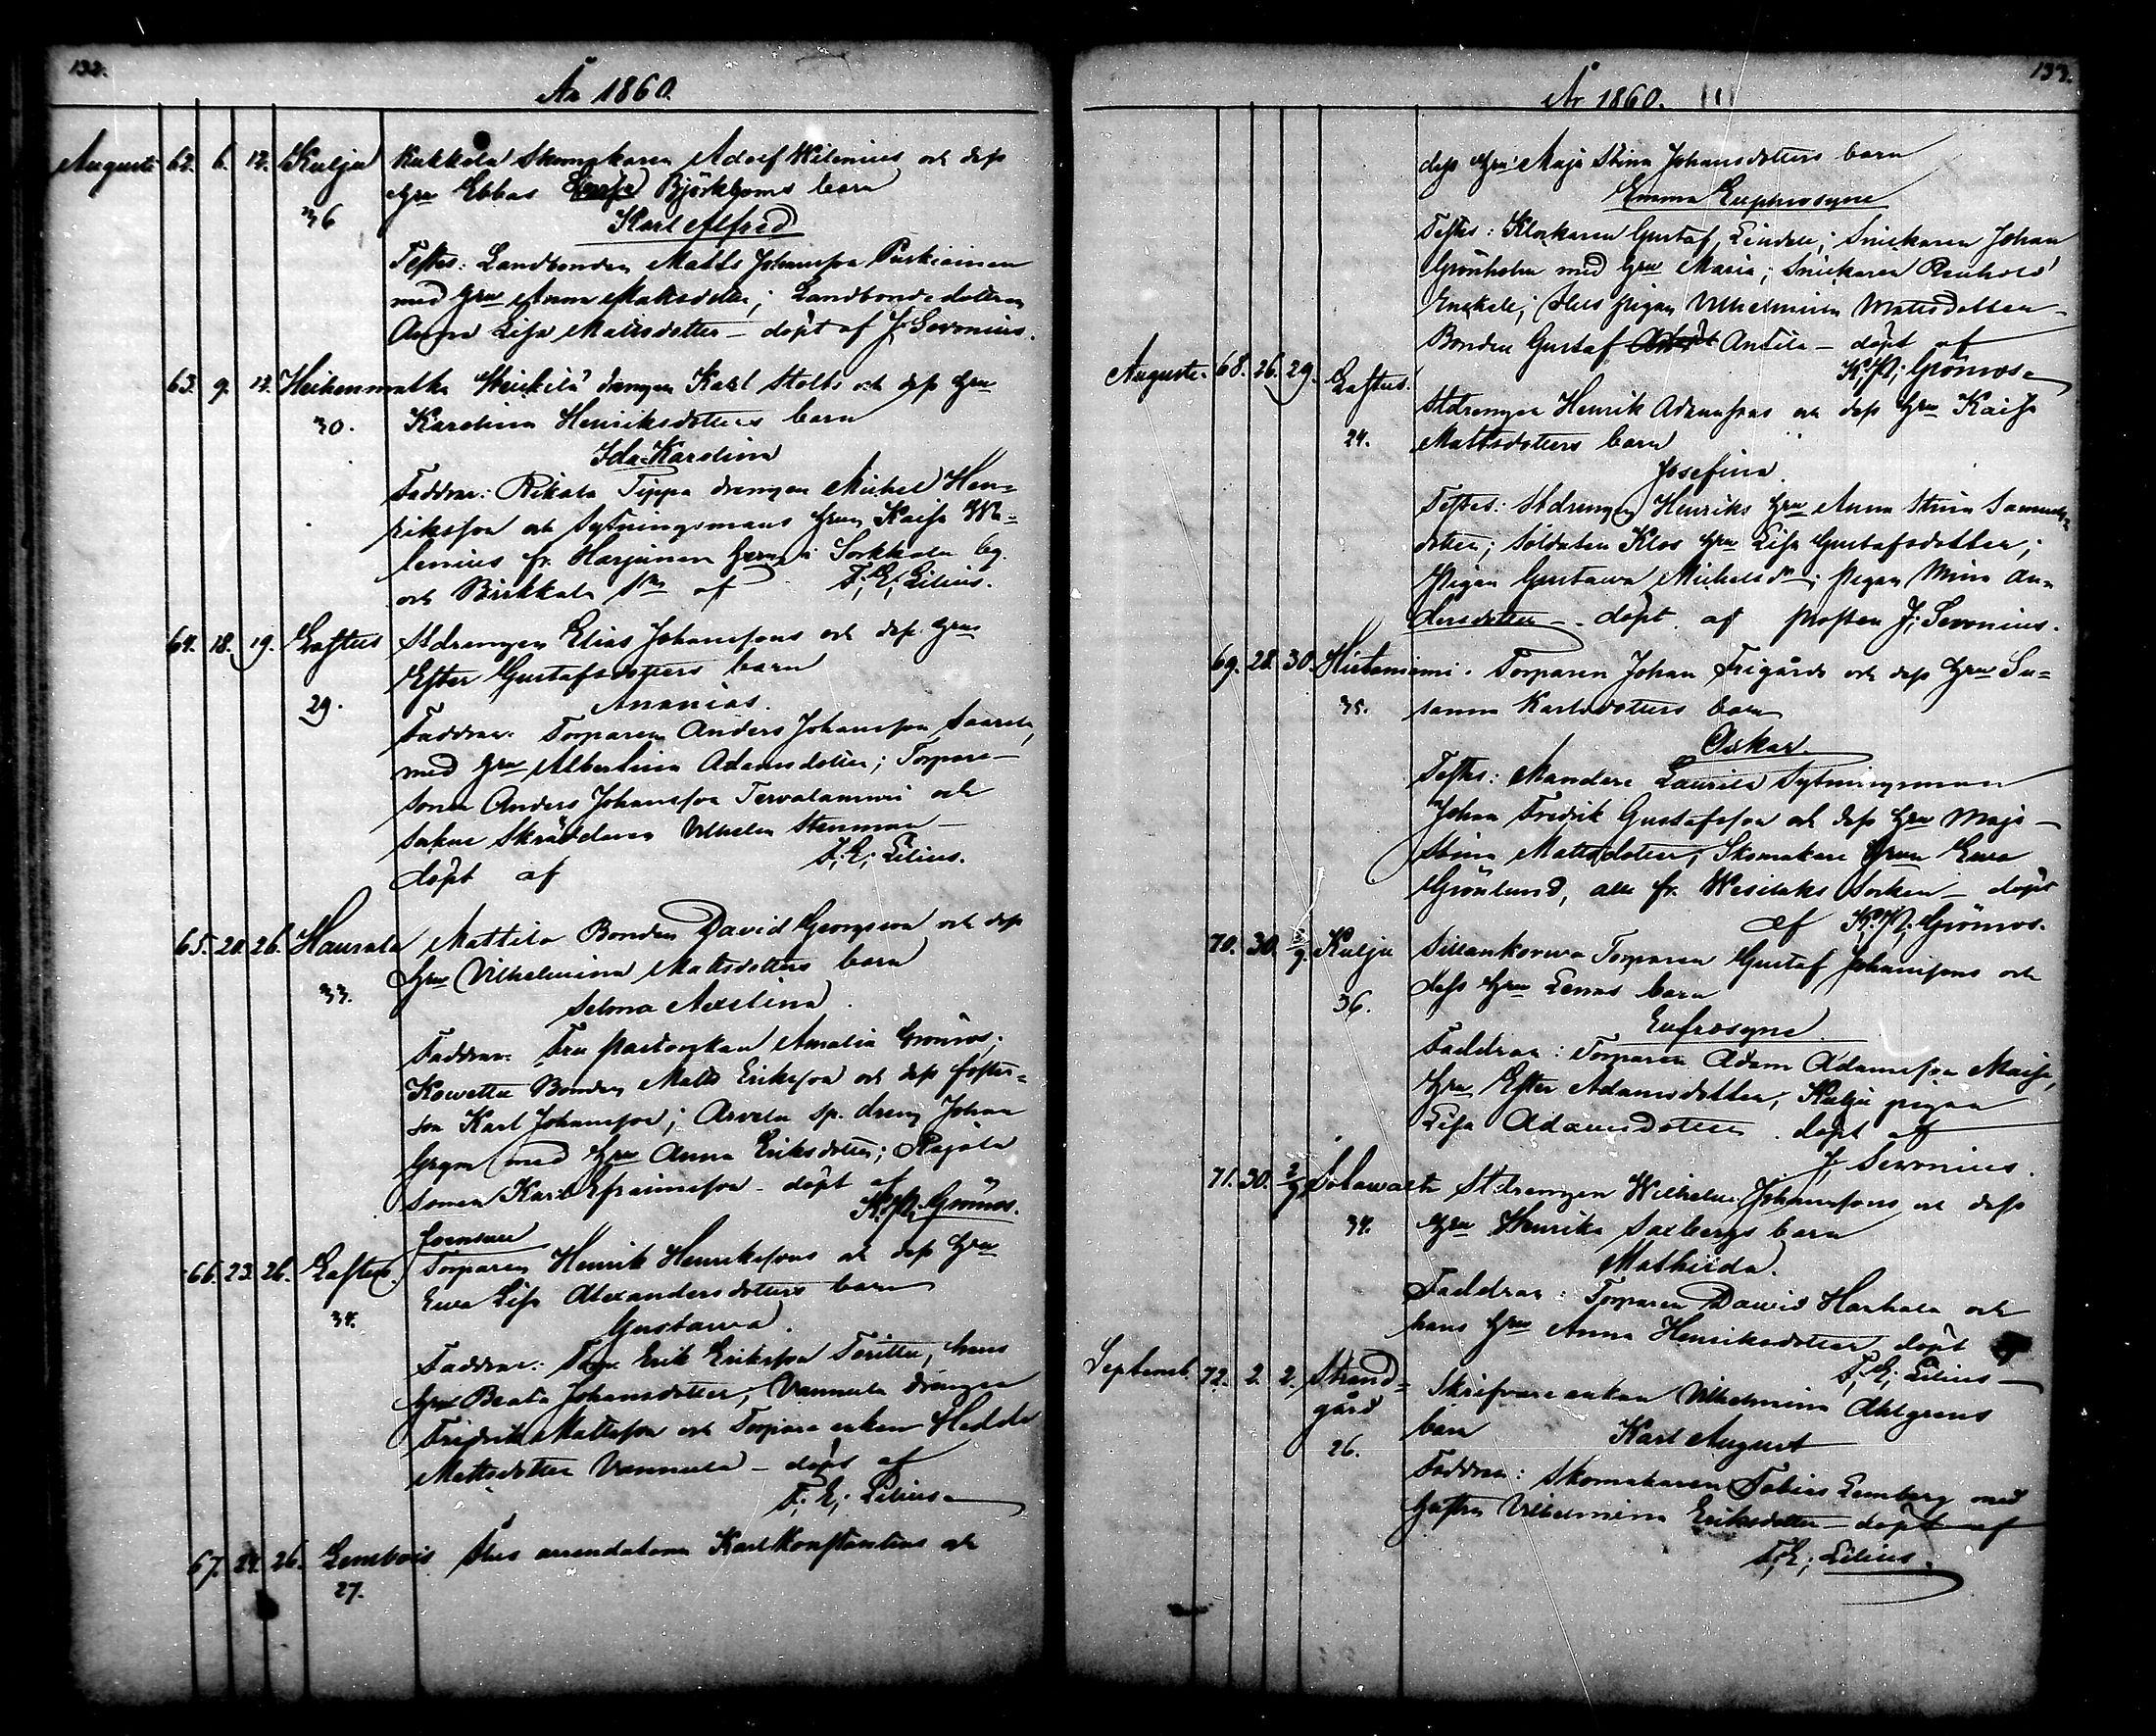 132.
År 1860.
Augusti 62. 6. 12. Kulju Kukkola Skomakaren Adolf Wilenius och dess
36 hru Ebbas Björkboms barn
Karl Alfred
Testes: Landbonden Matts Johansson Paskiainen
med hru Anna Mattsdotter; Landbondedottren
Anna Lisa Mattsdotter – döpt af J. Sevonius.
63. 9. 12. Heikenmatka Heikkilä drengen Karl Stolts och dess hru
30. Karolina Henriksdotters barn
Ida Karolina
Faddrar: Rikala Tippa drengen Michel Hen=
riksson och Sytningsmans hrun Kaisa We=
lenius fr. Harjunen i Sorkkala by.
och Birkkala Sn af F; E; Lilius.
64. 18. 19. Laftus Stdrengen Elias Johanssons och dess hrus
29. Ester Gustafsdotters barn
Ananias.
Faddrar: Torparen Anders Johansson Saarela,
med hru Albertina Adamsdotter; Torpare-
sonen Anders Johansson Tervalammi och
Sockne Skräddaren Vilhelm Stenman –
döpt af F; E; Lilius.
65. 20. 26. Haurala Mattila Bonden David Georgsson och dess
33. hru Vilhelmina Mattsdotters barn
Selma Axelina.
Faddrar: Fru pastorskan Amalia Grönroos;
Kowetta Bonden Matts Eriksson och dess foster=
son Karl Johansson; Arvela sp. dreng Johan
med hru Anna Eriksdotter; Rajala
sonen Karl Efraimsson – döpt af
K. A. Grönroos.
66. 23. 26. Laftus. Torparen Henrik Henrikssons och dess hru
34. Ewa Lisa Alexandersdotters barn
Gustawa.
Faddrar: Torp. Erik Eriksson Toritta, hans
hru Beata Johansdotter, Vannula drengen
Fredrik Mattsson och Torpare enkan Hedda
Mattsdotter Vannula – döpt af
F; E; Lilius –
67. 24. 26. Lembois Slus arrendatorn Karl Konstantins och
27.
133.
År 1860.
dess hru Maja Stina Johansdotters barn
Emma Euphrosyne
Testes: Klockaren Gustaf Lindell; Snickaren Johan
Grönholm med hru Maria; Snickaren Renhold
Enckell; Slus pigan Vilhelmina Mattsdotter –
Bonden Gustaf Antila – döpt af
K; A; Grönroos –
Augusti. 68. 26. 29. Laftus. Stdrengen Henrik Adamssons och dess hru Kaisa
24. Mattsdotters barn
Josefina.
Testes: Stdrengen Henriks hru Anna Stina Samuels=
dotter; Soldaten Klos hru Lisa Gustafsdotter;
Pigan Gustawa Michelsdr; pigan Mina An=
dersdotter – döpt af prosten J; Sevonius.
69. 28. 30. Hietaniemi. Torparen Johan Frigårds och dess hru Su=
35. sanna Karlsdotters barn
Oskar.
Testes: Mandere Laurila Sytningsman
Johan Fredrik Gustafsson och dess hru Maja –
Stina Mattsdotter, Skomakare hrun Ewa
Grönlund, alla fr. Wesilaks Socken – döpt
af K; A; Grönroos.
70. 30. 2/9 Kulju Sillankorwa Torparen Gustaf Johanssons och
36. dess hru Lenas barn
Eufrosyne.
Faddrar: Torparen Adam Adamsson Maisi,
hru Ester Adamsdotter, Kulju pigan
Lisa Adamsdotter. döpt af
J. Sevonius.
71. 30. 2/9 Solawalta Stdrengen Wilhelm Johanssons och dess
34. hru Henrika Saxbergs barn
Mathilda.
Faddrar: Torparen Dawid Harhala och
hans hru Anna Henriksdotter, döpt
F; E; Lilius –
Septemb. 72. 2. 2. Strand= Skrifvare enkan Vilhelmina Ahlgrens
gård barn Karl August
26. Faddrar: Skomakaren Tobias Lemberg med
hustru Vilhelmina Eriksdotter – döpt af
F; E; Lilius.